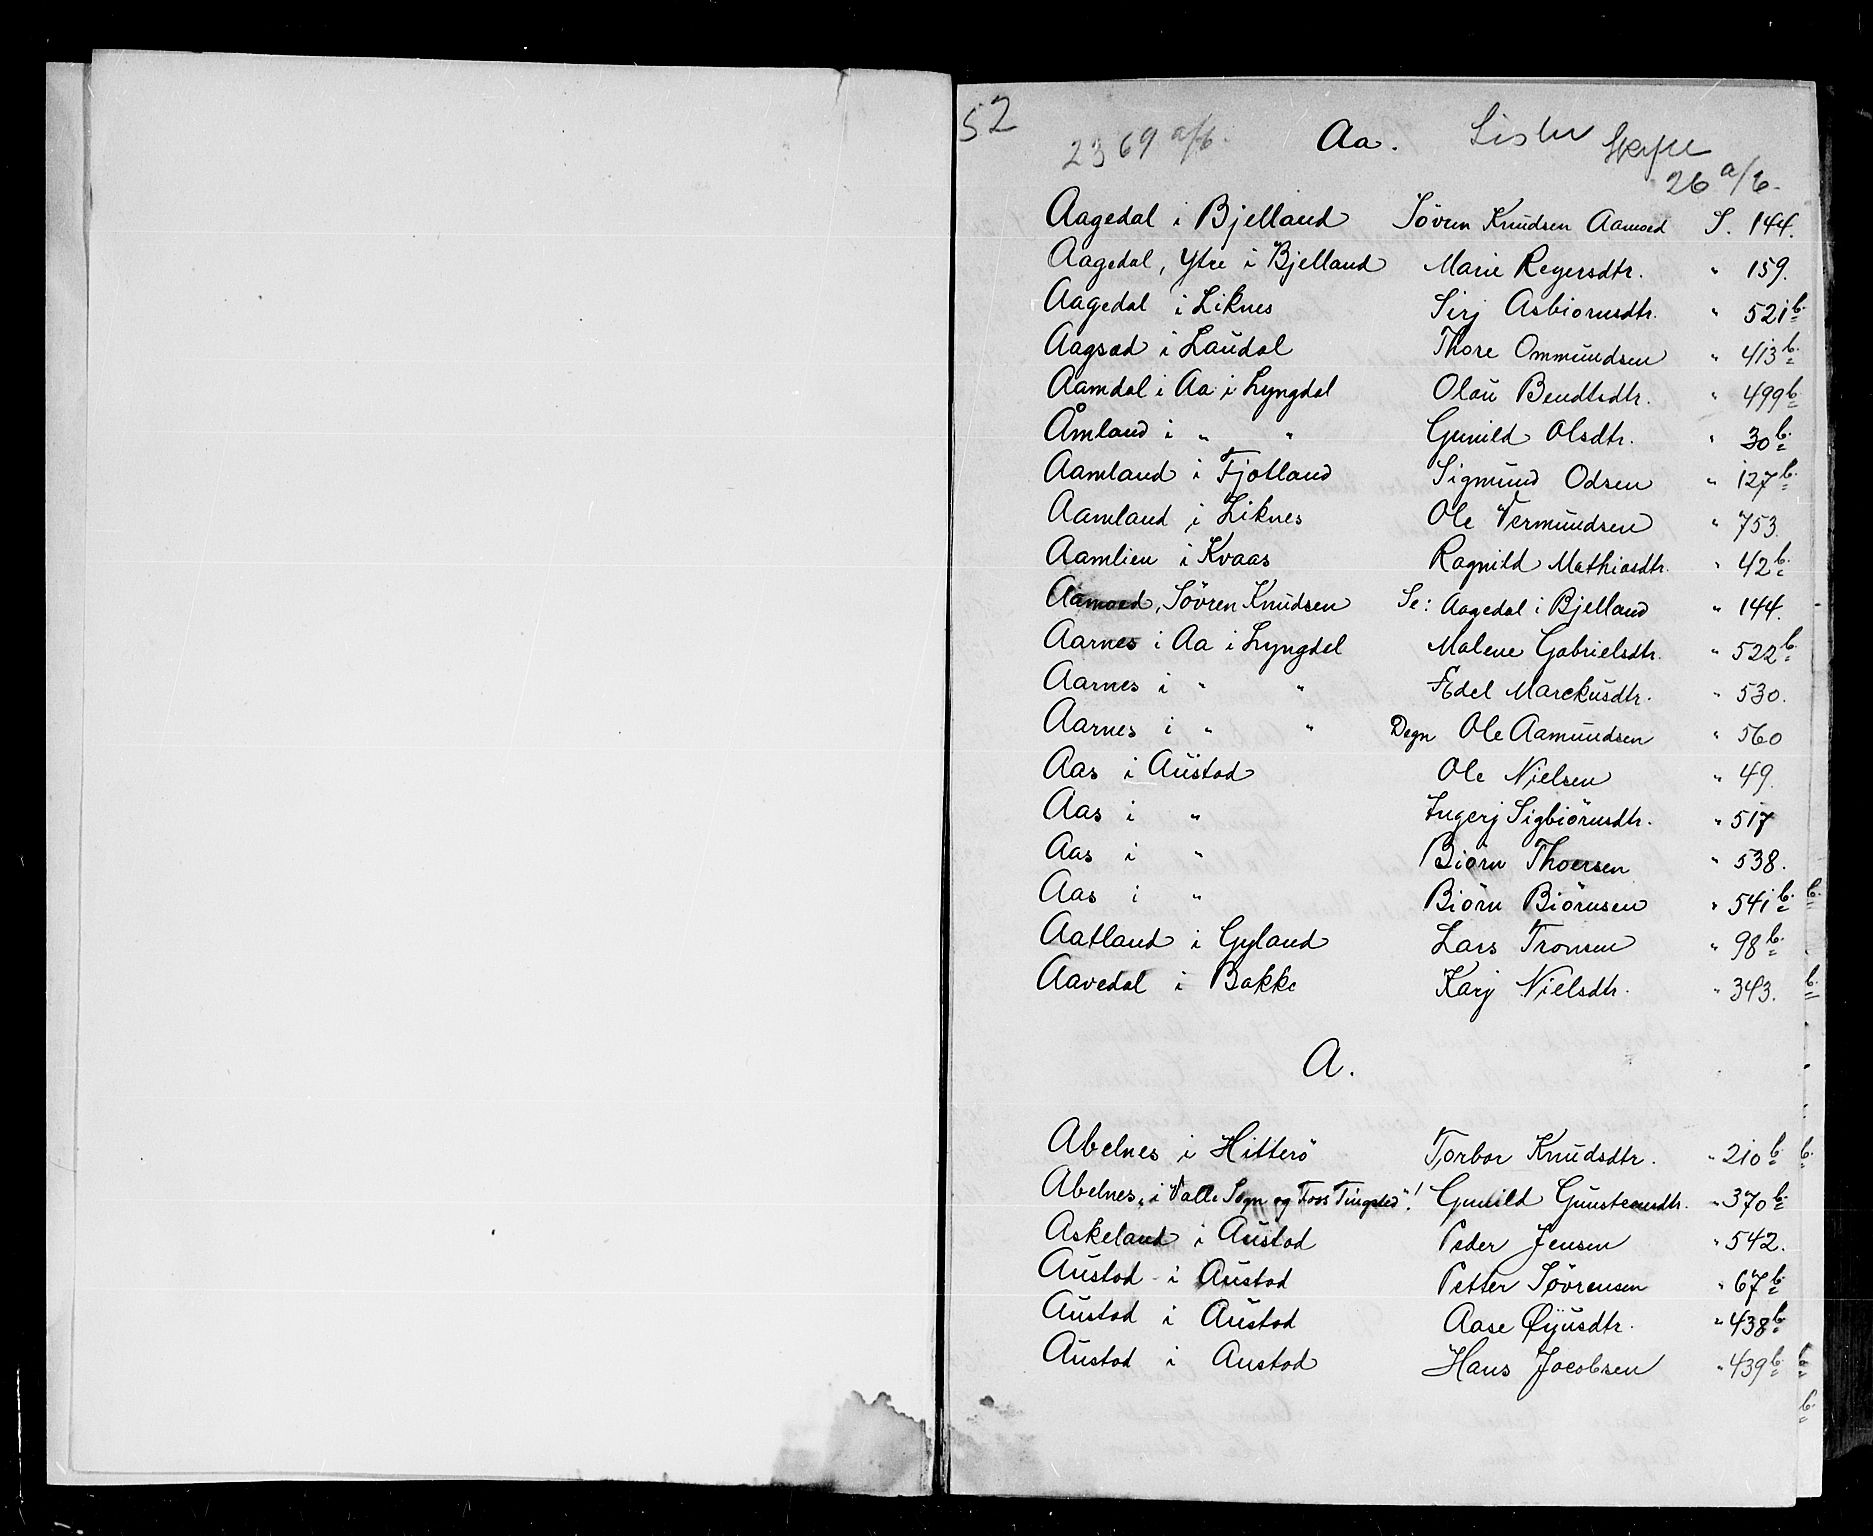 52
2369 a/b.
Aa.
Lister
Skifte
26 a/b.
Aagedal i Bjelland Sövren Knudsen Aamoed S. 144.
Aagedal, Ytre i Bjelland Marie Regersdtr. " 159.
Aagedal i Liknes Sirj Asbiörnsdtr. " 521 b.
Aagsæd i Laudal Thore Ommundsen " 413 b.
Aamdal i Aa i Lyngdal Olau Bendtsdtr. " 499 b
Åmland i " " Gunild Olsdtr. " 30 b.
Aamland i Fjotland Sigmund Odsen " 127 b.
Aamland i Liknes Ole Vermundsen " 753.
Aamlien i Kvaas Ragnild Mathiasdtr. " 42 b.
Aamoed, Sövren Knudsen Se: Aagedal i Bjelland " 144.
Aarnes i Aa i Lyngdal Malene Gabrielsdtr. " 522 b.
Aarnes i " " Edel Marckusdtr. " 530.
Aarnes i " " Degn Ole Aamundsen " 560
Aas i Austad Ole Nielsen " 49.
Aas i " Ingerj Sigbiörnsdtr. " 517
Aas i " Biörn Thoersen " 538.
Aas i " Biörn Biörnsen " 541 b.
Aatland i Gyland Lars Tronsen " 98 b.
Aavedal i Bakke Karj Nielsdtr. " 343.
A.
Abelnes i Hitterö Torbor Knudsdtr. " 210 b
Abelnes, i "Valle Sogn og Foss Tingsted"! Gunild Gunstensdtr. " 370 b.
Askeland i Austad Peder Jensen " 542.
Austad i Austad Petter Sövrensen " 67 b.
Austad i Austad Aase Øyusdtr. " 438 b.
Austad i Austad Hans Jacobsen " 439 b.